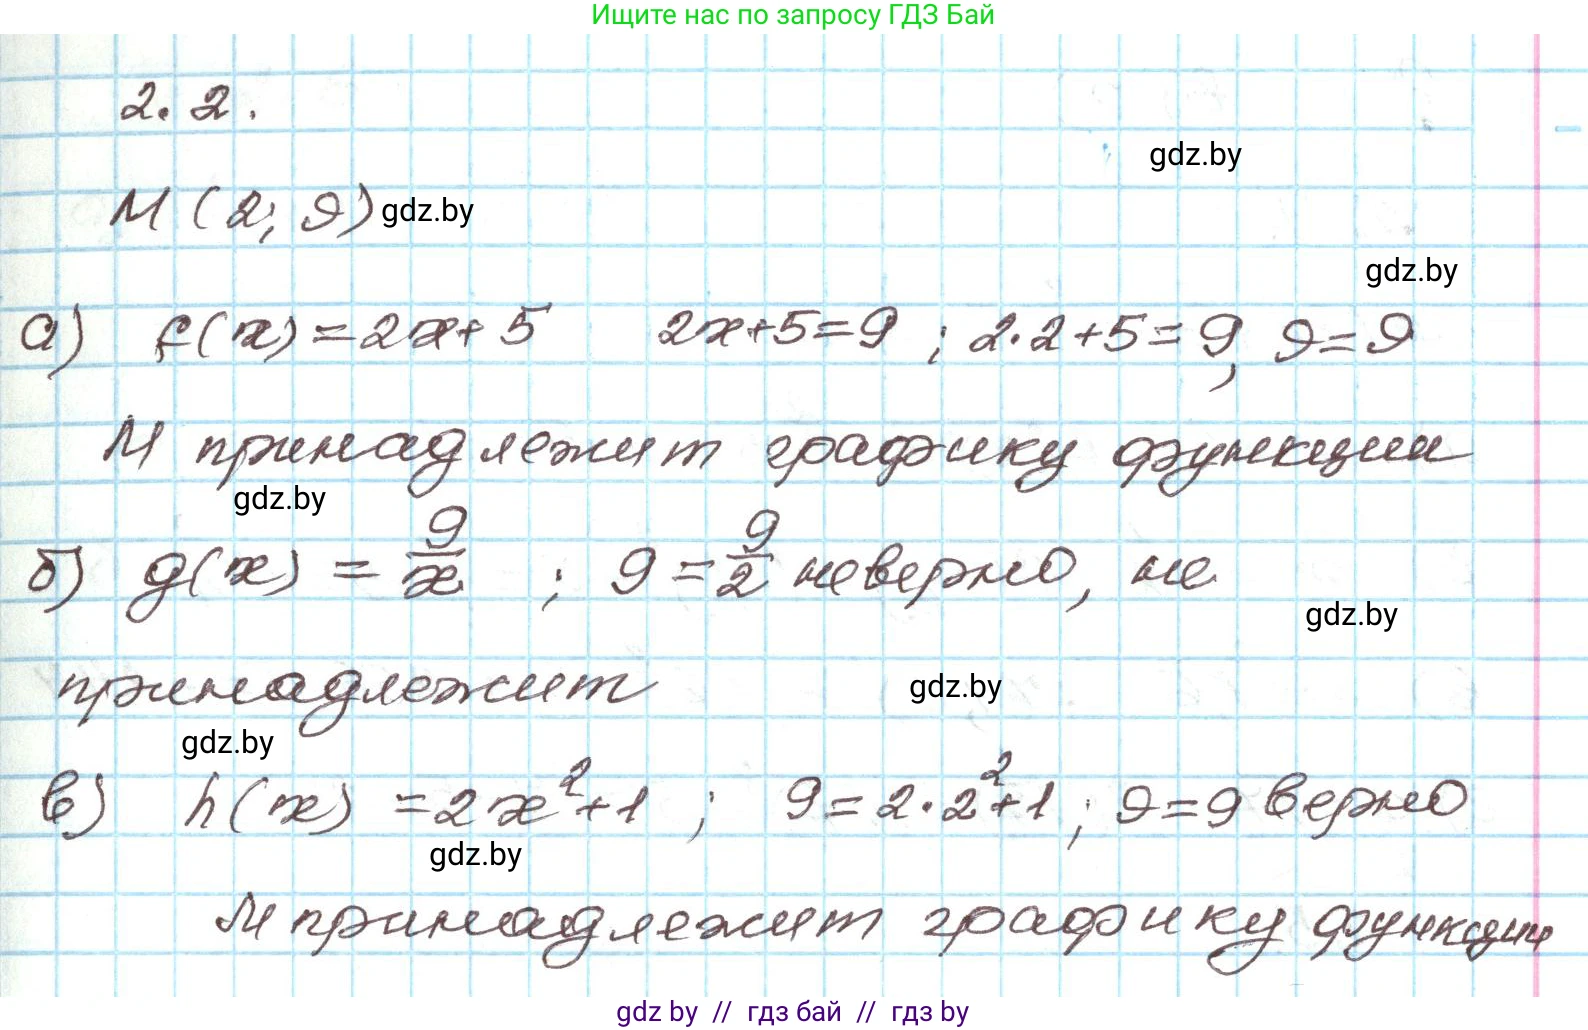 Ищите нас по запросу ГДЗ Бай
2.2.
gdz.by
М (2; 9) gdz.by
gdz.by
а) f(x)=2x+5   2x+5=9 ; 2·2+5=9, 9=9
М принадлежит графику функции
gdz.by
б) g(x) = 9/x ; 9 = 9/2 неверно, не
gdz.by
принадлежит
gdz.by
gdz.by
в) h(x) =2x²+1 ; 9=2·2²+1 ; 9=9 верно
gdz.by
М принадлежит графику функции
gdz by // гдз бай // gdz.by